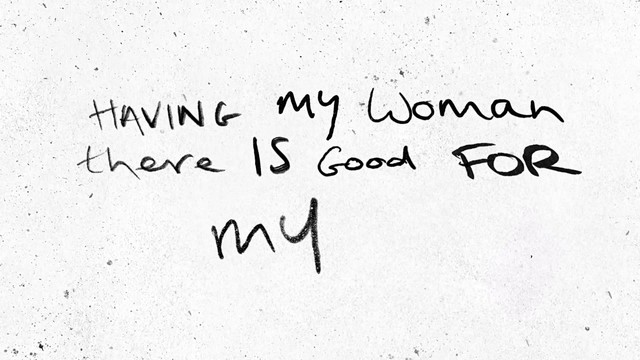 HAVING my Woman
there IS Good FOR
my